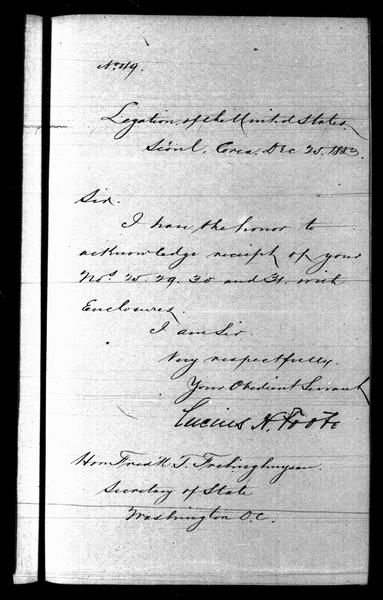 No 49.
Legation of the United States,
Séoul, Corea, Dec 25. 1883.
Sir.
I have the honor to
acknowledge receipt of your
Nos 29. 30 and 31. with
Enclosures.
I am Sir
Very respectfully.
Your Obedient Servant
Lucius H. Foote
Hon Fredk T. Frelinghuysen.
Secretary of State
Washington D.C.